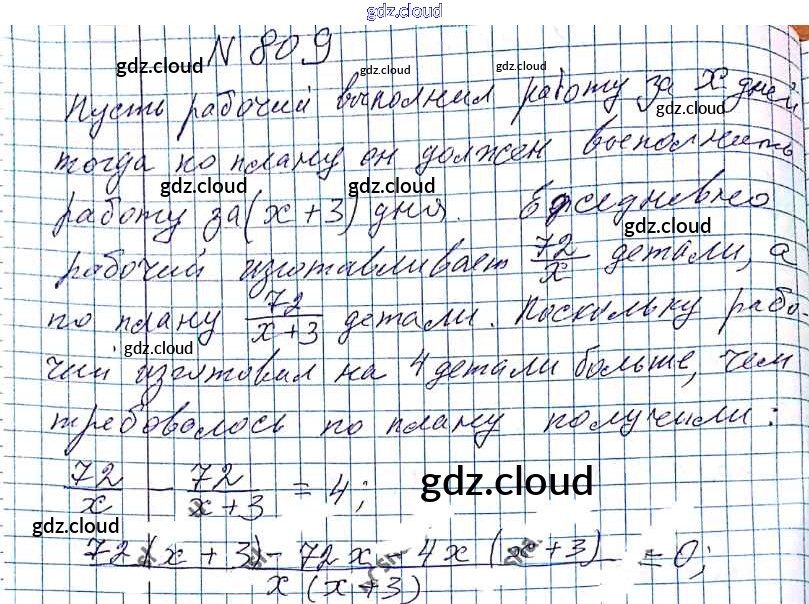 gdz.cloud
N 809
gdz.cloud gdz.cloud gdz.cloud
Пусть рабочий выполнил работу за x дней
gdz.cloud gdz.cloud
тогда по плану он должен выполнить
gdz.cloud gdz.cloud
работу за (x+3) дня. Ежедневно
gdz.cloud
рабочий изготавливает 72/x детали, а
по плану 72/(x+3) детали. Поскольку рабо-
gdz.cloud
чий изготовил на 4 детали больше, чем
требовалось по плану получили:
72/x - 72/(x+3) = 4;
gdz.cloud
gdz.cloud
(72(x+3) - 72x - 4x(x+3))/(x(x+3)) = 0;